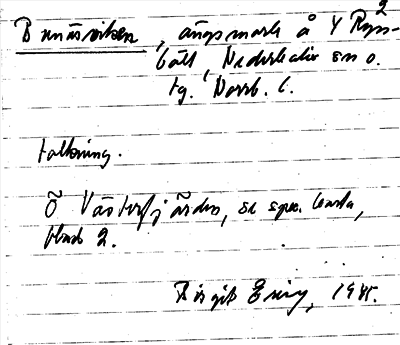 Brunäsviken, ängsmark å Y Ryss-
2
bält, Nederkalix sn o.
tg. Norrb. l.
tolkning.
Ö Västerfjärden, se spec. karta,
blad 2.
Birgit Ering, 1945.